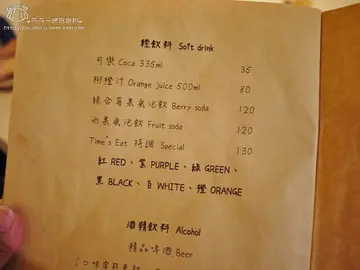 輕飲料 Soft drink
可樂 Coca 335ml 35
柳橙汁 Orange juice 500ml 80
綜合莓果氣泡飲 Berry soda 120
水果氣泡飲 Fruit soda 120
Time's Eat 特調 Special 130
紅 RED、紫 PURPLE、綠 GREEN、
黑 BLACK、白 WHITE、橙 ORANGE
酒精飲料 Alcohol
精品啤酒 Beer